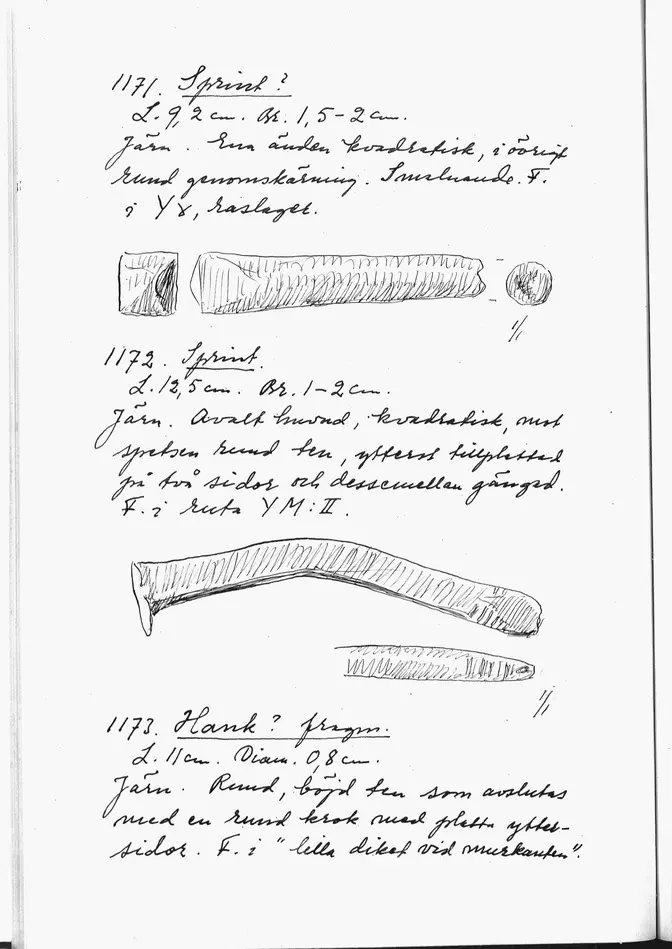 1171. Sprint?
L. 9,2 cm. Br. 1,5-2 cm.
Järn. Ena änden kvadratisk, i övrigt
rund genomskärning. Smalnande. F.
i Y8, raslaget.
1/1
1172. Sprint.
L. 12,5 cm. Br. 1-2 cm.
Järn. Ovalt huvud, kvadratisk, mot
spetsen rund ten, ytterst tillplattad
på två sidor och dessemellan gängad.
F. i ruta YM:II.
1/1
1173. Hank? fragm.
L. 11 cm. Diam. 0,8 cm.
Järn. Rund, böjd ten som avslutas
med en rund krok med platta ytter-
sidor. F. i "lilla diket vid murkanten".